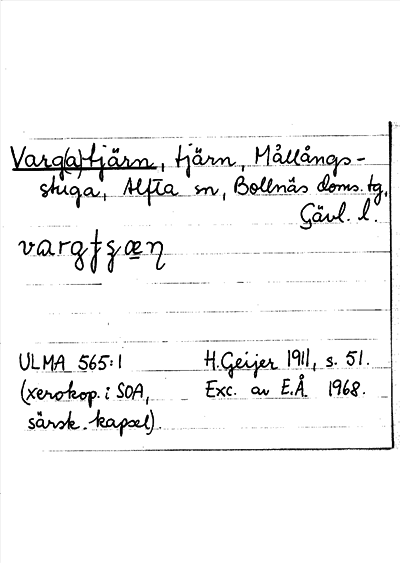 Varg(a)tjärn, tjärn, Mållångs-
stuga, Alfta sn, Bollnäs doms. tg,
Gävl. l.
ULMA 565:1
H. Geijer 1911, s. 51.
(xerokop. i SOA,
Exc. av E.Å 1968.
särsk. kapsel).